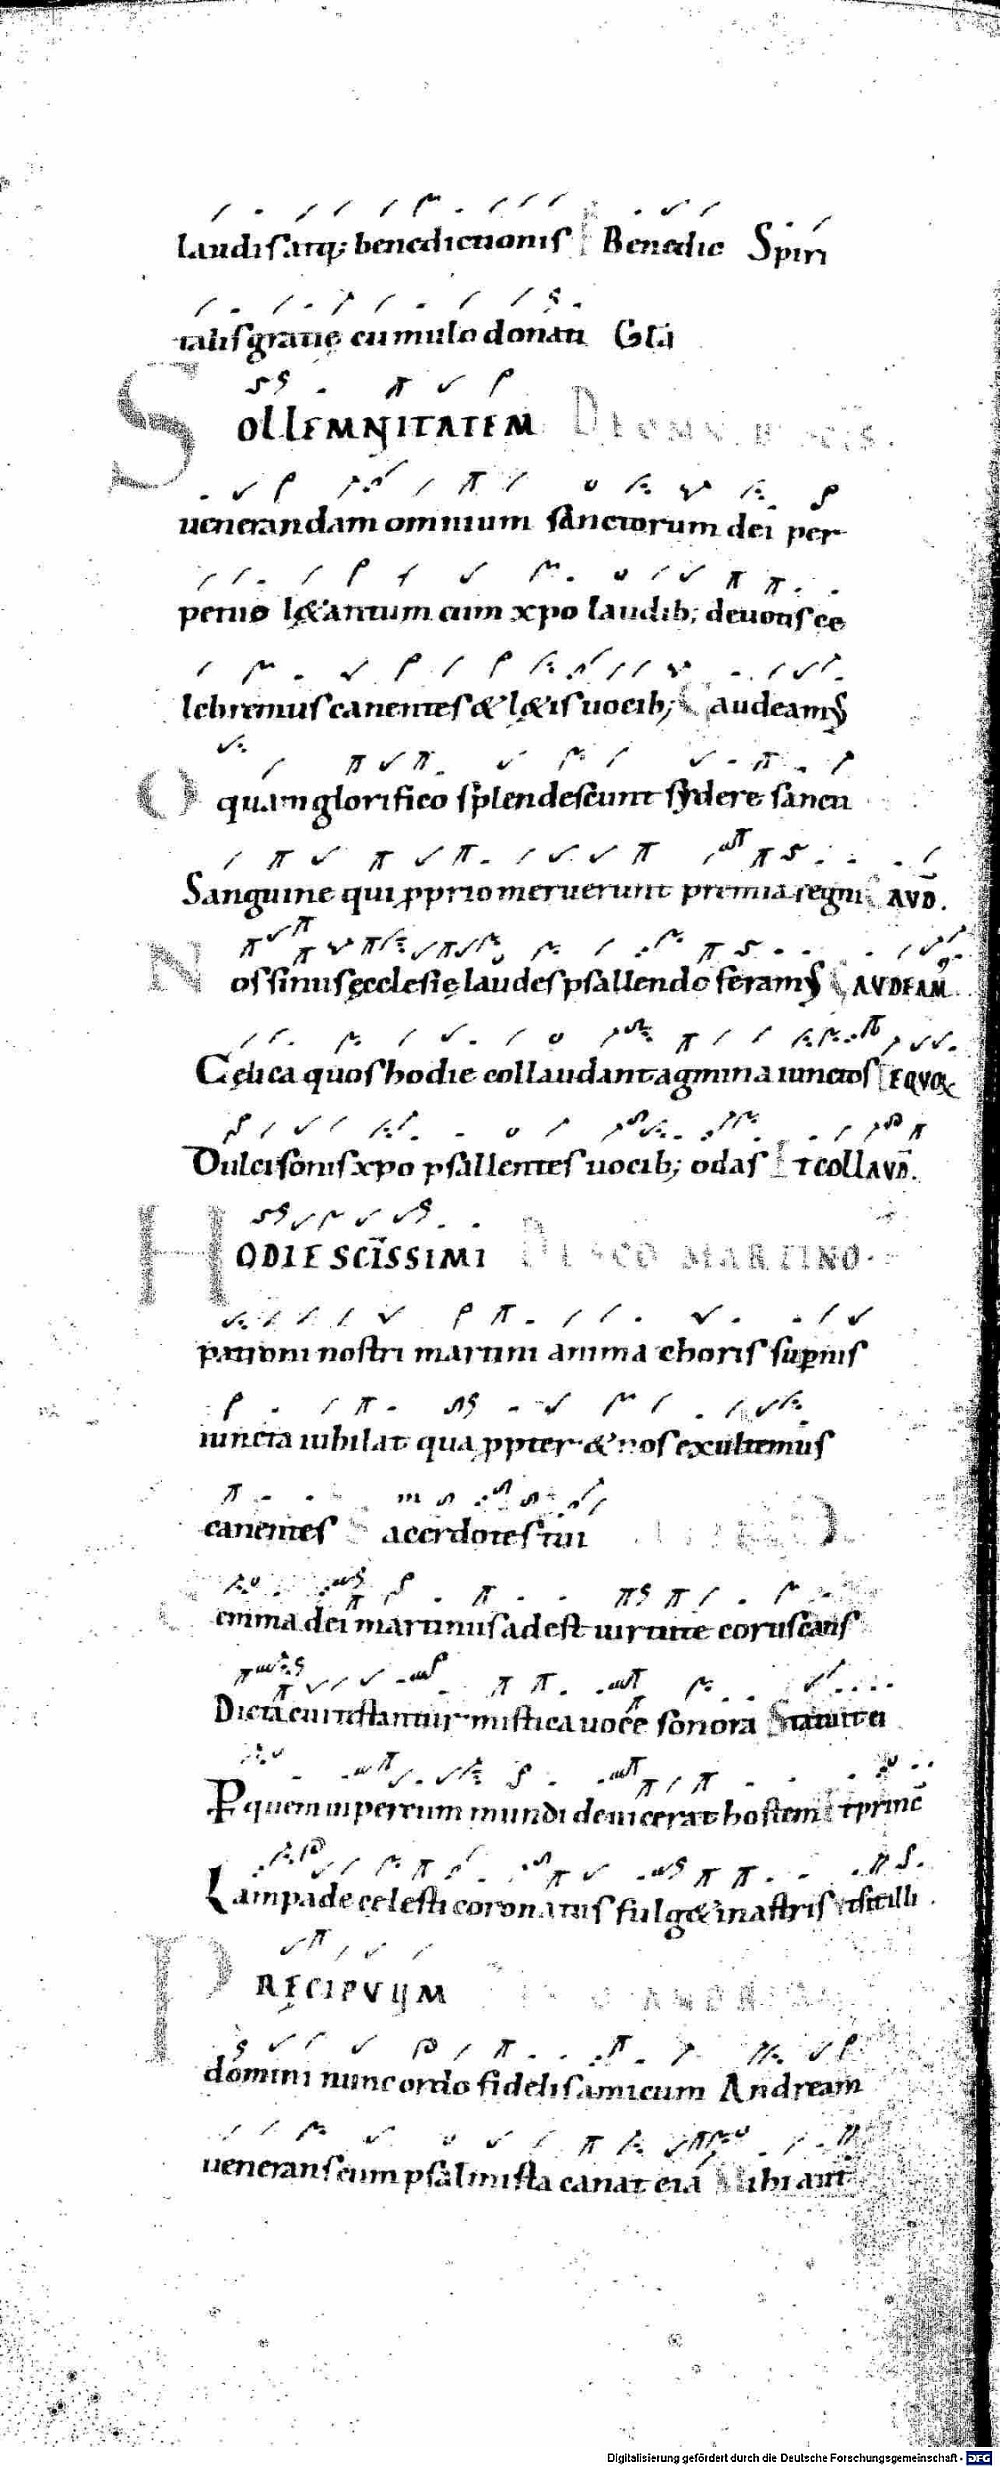 laudis atq; benedictionis Benedic Spiri
talis gratię cumulo donati Gła
SOLLEMNITATEM DE OMNIB; SC̄IS.
uenerandam omnium sanctorum dei per
petuo l&antum cum xpo laudib; deuotis ce
lebremus canentes & l&is uocib; Gaudeamus
O quam glorifico splendescunt sydere sancti
Sanguine qui ꝓprio meruerunt premia regni GAVD̄.
Nos sinus ęcclesię laudes psallendo feramus GAVDEAM̄
Cęlica quos hodie collaudant agmina iunctos EQVOꝜ
Dulcisonis xpo psallentes uocib; odas ET COLLAVD̄.
HODIE SC̄ISSIMI DE SCO MARTINO.
patroni nostri martini anima choris sup̄nis
iuncta iubilat qua ꝓpter & nos exultemus
canentes Sacerdotes tui
Gemma dei martinus adest uirtute coruscans
Dicta cui instantur mistica uoce sonora Statuit ei
P̱ quem imperium mundi deuicerat hostem Et princ̄
Lampade cęlesti coronatus fulg& in astris Vt sit illi.
PRĘCIPVUM DE S ANDREA
domini nunc ordo fidelis amicum Andream
uenerans cum psalmista canat eia Mihi aut̄
Digitalisierung gefördert durch die Deutsche Forschungsgemeinschaft - DFG